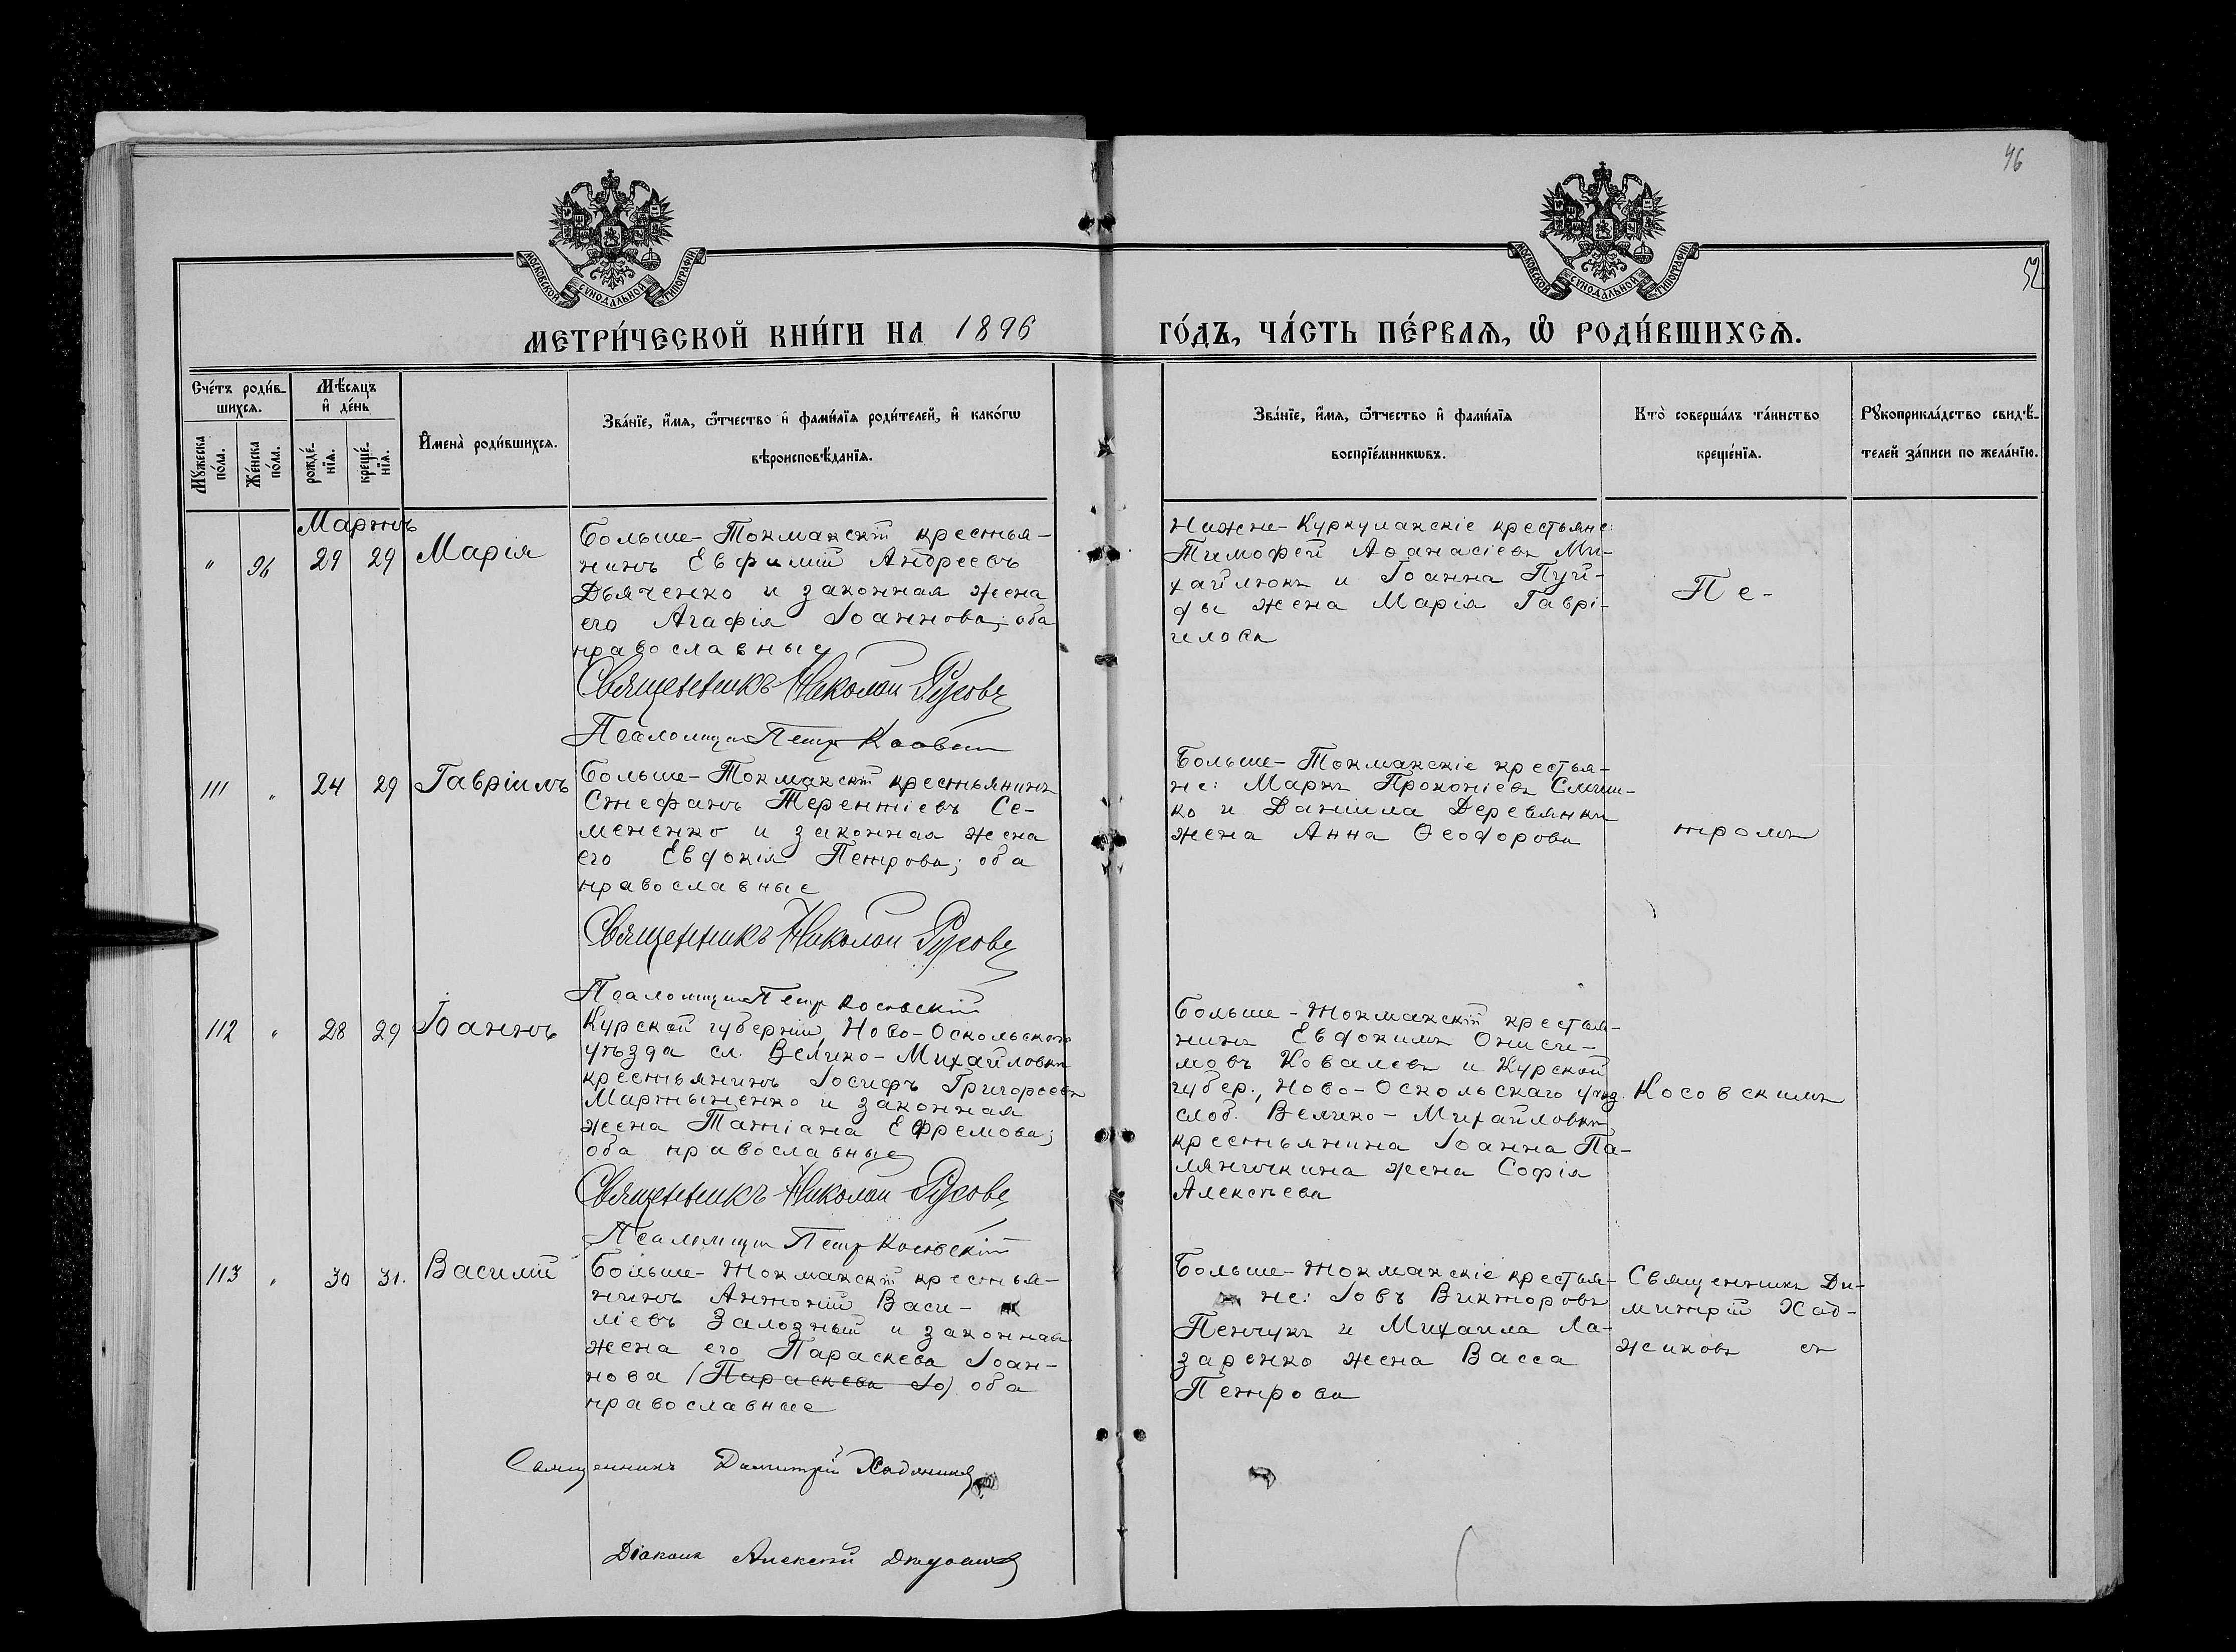 46
52
МОСКОВСКОЙ СѴНОДАЛЬНОЙ ТИПОГРАФІИ
МОСКОВСКОЙ СѴНОДАЛЬНОЙ ТИПОГРАФІИ
МЕТРИ́ЧЕСКОЙ КНИ́ГИ НА 1896
ГО́ДЪ, ЧА́СТЬ ПЕ́РВАѦ, Ѽ РОДИ́ВШИХСѦ.
Сче́тъ роди́в-
шихсѧ.
Мꙋ́жеска
по́ла.
Же́нска
по́ла.
Мѣ́сѧцъ
и҆ де́нь
рожде́-
нїѧ.
креще́-
нїѧ.
И҆мена̀ роди́вшихсѧ.
Зва́нїе, и҆́мѧ, ѻ҆́тчество и҆ фами́лїѧ роди́телей, и҆ како́гѡ
вѣроисповѣ́данїѧ.
Зва́нїе, и҆́мѧ, ѻ҆́тчество и҆ фами́лїѧ
воспрїе́мникѡвъ.
Кто̀ соверша́лъ та́инство
креще́нїѧ.
Рꙋкоприкла́дство свидѣ́-
телей за́писи по жела́нїю.
Мартъ
" 96 29 29 Марія
Больше-Токмакскій крестья-
нинъ Евфимій Андреевъ
Дьяченко и законная жена
его Агафія Іоаннова; оба
православные
Священникъ Николай Русовъ
Псаломщик Петр
Нижне-Куркулакскіе крестьяне:
Тимофей Аѳанасіевъ Ми-
хайлюкъ и Іоанна Пуй-
ды жена Марія Гаврі-
илова
Пе-
111 " 24 29 Гавріилъ
Больше-Токмакскій крестьянинъ
Стефанъ Терентіевъ Се-
мененко и законная жена
его Евдокія Петрова; оба
православные
Священникъ Николай Русовъ
Псаломщик Петр Косовскій
Больше-Токмакскіе крестья-
не: Маркъ Прокопіевъ
ко и Даніила Деревянки
жена Анна Ѳеодорова
тромъ
112 " 28 29 Іоаннъ
Курской губерніи, Ново-Оскольскаго
уѣзда сл. Велико-Михайловки
крестьянинъ Іосифъ Григорьевъ
Мартыненко и законная
жена Татіана Ефремова;
оба православные
Священникъ Николай Русовъ
Псаломщик Петр Косовскій
Больше-Токмакскій крестья-
нинъ Евдокимъ Ониси-
мовъ Ковалевъ и Курской
губер., Ново-Оскольскаго уѣзд.
слоб. Велико-Михайловки
крестьянина Іоанна Па-
ляничкина жена Софія
Алексѣева
Косовскимъ
113 " 30 31. Василій
Больше-Токмакскій крестья-
нинъ Антоній Васи-
ліевъ Залозный и законная
жена его Параскева Іоан-
нова (Параскева Іо) оба
православные
Священникъ Димитрій Хаджиновъ
Діаконъ Алексѣй
Больше-Токмакскіе крестья-
не: Іовъ Викторовъ
Пенчукъ и Михаила Ла-
заренко жена Васса
Петрова
Священникъ Ди-
митрій Хад-
жиновъ съ